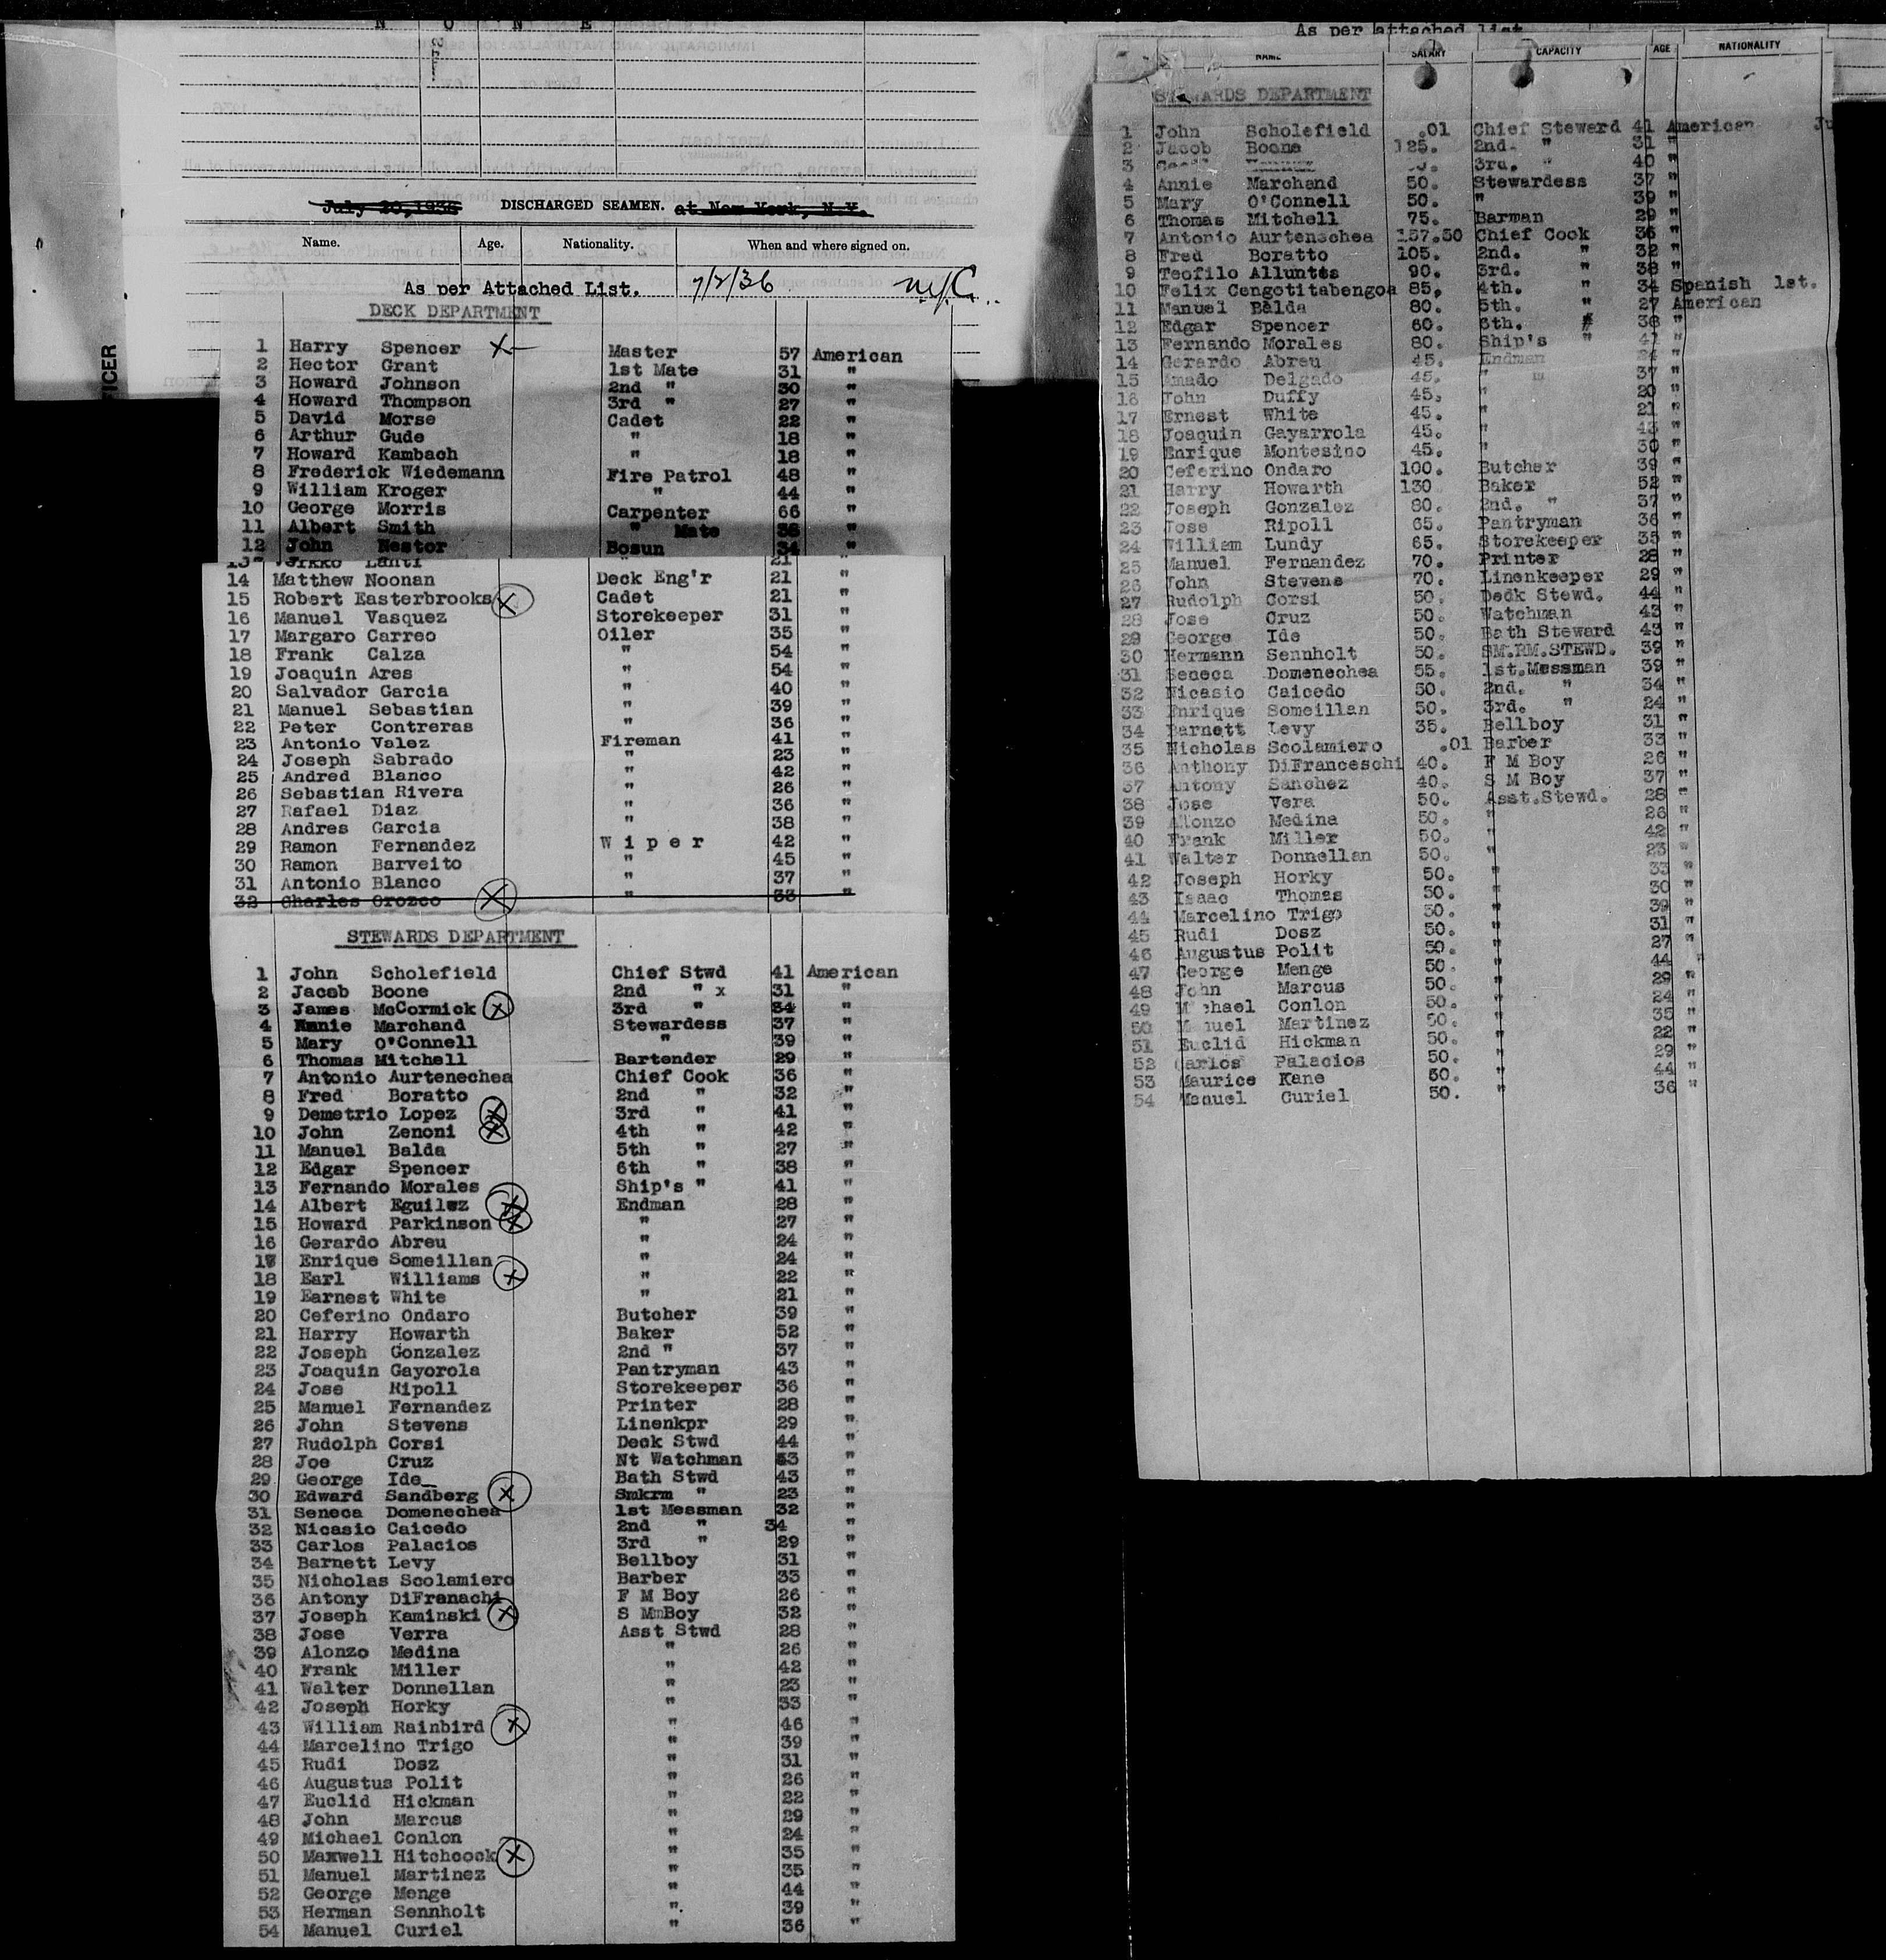 N O N E
July 20,1936 DISCHARGED SEAMEN. at New York, N.Y.
Name. Age. Nationality. When and where signed on.
As per Attached List. 7/2/36 N.Y.C.
DECK DEPARTMENT
1 Harry Spencer X Master 57 American
2 Hector Grant 1st Mate 31 "
3 Howard Johnson 2nd " 30 "
4 Howard Thompson 3rd " 27 "
5 David Morse Cadet 22 "
6 Arthur Gude " 18 "
7 Howard Kambach " 18 "
8 Frederick Wiedemann Fire Patrol 48 "
9 William Kroger " 44 "
10 George Morris Carpenter 66 "
11 Albert Smith " Mate 36 "
12 John Nestor Bosun 34 "
13 Lahti 21
14 Matthew Noonan Deck Eng'r 21 "
15 Robert Easterbrooks X Cadet 21 "
16 Manuel Vasquez Storekeeper 31 "
17 Margaro Carreo Oiler 35 "
18 Frank Calza " 54 "
19 Joaquin Ares " 54 "
20 Salvador Garcia " 40 "
21 Manuel Sebastian " 39 "
22 Peter Contreras " 36 "
23 Antonio Valez Fireman 41 "
24 Joseph Sabrado " 23 "
25 Andred Blanco " 42 "
26 Sebastian Rivera " 26 "
27 Rafael Diaz " 36 "
28 Andres Garcia " 38 "
29 Ramon Fernandez W i p e r 42 "
30 Ramon Barveito " 45 "
31 Antonio Blanco " 37 "
32 Charles Orozco X " 33 "
STEWARDS DEPARTMENT
1 John Scholefield Chief Stwd 41 American
2 Jacob Boone 2nd " x 31 "
3 James McCormick X 3rd " 34 "
4 Annie Marchand Stewardess 37 "
5 Mary O'Connell " 39 "
6 Thomas Mitchell Bartender 29 "
7 Antonio Aurtenechea Chief Cook 36 "
8 Fred Boratto 2nd " 32 "
9 Demetrio Lopez X 3rd " 41 "
10 John Zenoni X 4th " 42 "
11 Manuel Balda 5th " 27 "
12 Edgar Spencer 6th " 38 "
13 Fernando Morales Ship's " 41 "
14 Albert Eguilez X Endman 28 "
15 Howard Parkinson X " 27 "
16 Gerardo Abreu " 24 "
17 Enrique Someillan " 24 "
18 Earl Williams X " 22 "
19 Earnest White " 21 "
20 Ceferino Ondaro Butcher 39 "
21 Harry Howarth Baker 52 "
22 Joseph Gonzalez 2nd " 37 "
23 Joaquin Gayorola Pantryman 43 "
24 Jose Ripoll Storekeeper 36 "
25 Manuel Fernandez Printer 28 "
26 John Stevens Linenkpr 29 "
27 Rudolph Corsi Deck Stwd 44 "
28 Joe Cruz Nt Watchman 53 "
29 George Ide Bath Stwd 43 "
30 Edward Sandberg X Smkrm " 23 "
31 Seneca Domenechea 1st Messman 32 "
32 Nicasio Caicedo 2nd " 34 "
33 Carlos Palacios 3rd " 29 "
34 Barnett Levy Bellboy 31 "
35 Nicholas Scolamiero Barber 33 "
36 Antony DiFranachi F M Boy 26 "
37 Joseph Kaminski X S MmBoy 32 "
38 Jose Verra Asst Stwd 28 "
39 Alonzo Medina " 26 "
40 Frank Miller " 42 "
41 Walter Donnellan " 23 "
42 Joseph Horky " 33 "
43 William Rainbird X " 46 "
44 Marcelino Trigo " 39 "
45 Rudi Dosz " 31 "
46 Augustus Polit " 26 "
47 Euclid Hickman " 22 "
48 John Marcus " 29 "
49 Michael Conlon " 24 "
50 Maxwell Hitchcock X " 35 "
51 Manuel Martinez " 35 "
52 George Menge " 44 "
53 Herman Sennholt " 39 "
54 Manuel Curiel " 36 "
As per attached list
NAME SALARY CAPACITY AGE NATIONALITY
STEWARDS DEPARTMENT
1 John Scholefield .01 Chief Steward 41 American Ju
2 Jacob Boone 125. 2nd. " 31 "
3 3rd. " 40 "
4 Annie Marchand 50. Stewardess 37 "
5 Mary O'Connell 50. " 39 "
6 Thomas Mitchell 75. Barman 29 "
7 Antonio Aurtenechea 157.50 Chief Cook 36 "
8 Fred Boratto 105. 2nd. " 32 "
9 Teofilo Alluntes 90. 3rd. " 38 "
10 Felix Cengotitabengoa 85. 4th. " 34 Spanish 1st.
11 Manuel Balda 80. 5th. " 27 American
12 Edgar Spencer 60. 6th. " 38 "
13 Fernando Morales 80. Ship's " 41 "
14 Gerardo Abreu 45. Endman 24 "
15 Amado Delgado 45. " 37 "
16 John Duffy 45. " 20 "
17 Ernest White 45. " 21 "
18 Joaquin Gayarrola 45. " 43 "
19 Enrique Montesino 45. " 30 "
20 Ceferino Ondaro 100. Butcher 39 "
21 Harry Howarth 130 Baker 52 "
22 Joseph Gonzalez 80. 2nd. " 37 "
23 Jose Ripoll 65. Pantryman 36 "
24 William Lundy 65. Storekeeper 35 "
25 Manuel Fernandez 70. Printer 28 "
26 John Stevens 70. Linenkeeper 29 "
27 Rudolph Corsi 50. Dedk Stewd. 44 "
28 Jose Cruz 50. Watchman 43 "
29 George Ide 50. Bath Steward 43 "
30 Hermann Sennholt 50. SM.RM.STEWD. 39 "
31 Seneca Domenechea 55. 1st.Messman 39 "
32 Nicasio Caicedo 50. 2nd. " 34 "
33 Enrique Someillan 50. 3rd. " 24 "
34 Barnett Levy 35. Bellboy 31 "
35 Nicholas Scolamiero .01 Barber 33 "
36 Anthony DiFranceschi 40. F M Boy 26 "
37 Antony Sanchez 40. S M Boy 37 "
38 Jose Vera 50. Asst.Stewd. 28 "
39 Alonzo Medina 50. " 26 "
40 Frank Miller 50. " 42 "
41 Walter Donnellan 50. " 23 "
42 Joseph Horky 50. " 33 "
43 Isaac Thomas 50. " 30 "
44 Marcelino Trigo 50. " 39 "
45 Rudi Dosz 50. " 31 "
46 Augustus Polit 50. " 27 "
47 George Menge 50. " 44 "
48 John Marcus 50. " 29 "
49 Michael Conlon 50. " 24 "
50 Manuel Martinez 50. " 35 "
51 Euclid Hickman 50. " 22 "
52 Carlos Palacios 50. " 29 "
53 Maurice Kane 50. " 44 "
54 Manuel Curiel 50. " 36 "